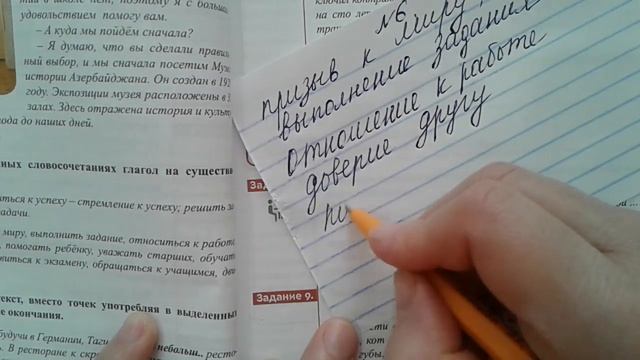 тии в школе нет, поэтому я с больш
удовольствием помогу вам.
– А куда мы пойдём сначала?
– Я думаю, что вы сделали правил
ный выбор, и мы сначала посетим Муз
истории Азербайджана. Он создан в 192
году. Экспозиции музея расположены в
залах. Здесь отражена история и культ
ода до наших дней.
ных словосочетаниях глагол на существ
ться к успеху – стремление к успеху; решить за
адачи.
миру, выполнить задание, относиться к работе
помогать ребёнку, уважать старших, обучат
виться к экзамену, обращаться к учащимся,
текст, вместо точек употребляя в выделенных
е окончания.
будучи в Германии,
небольш.. ресто
В ресторане к скр
на сто ле
Зада
Задание 9.
№
призыв к миру
выполнение задания
отношение к работе
доверие другу